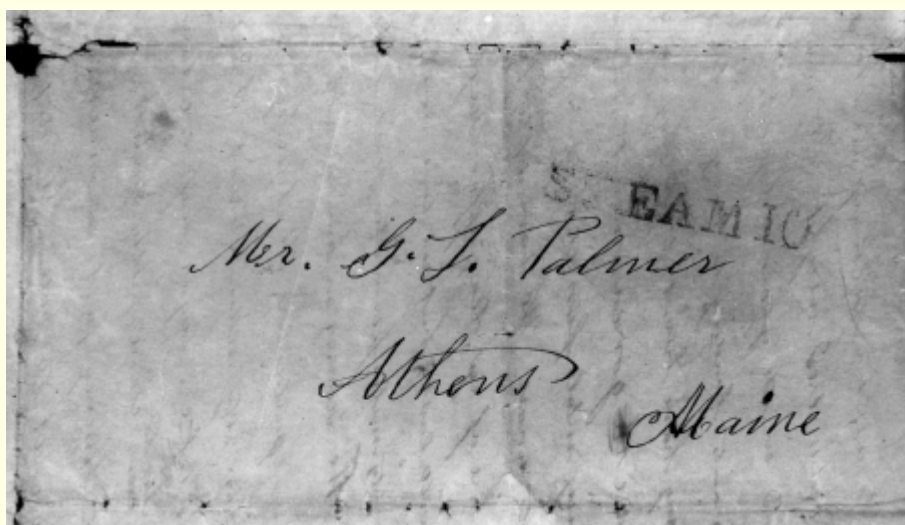 STEAM 10
Mr. G. L. Palmer
Athens
Maine